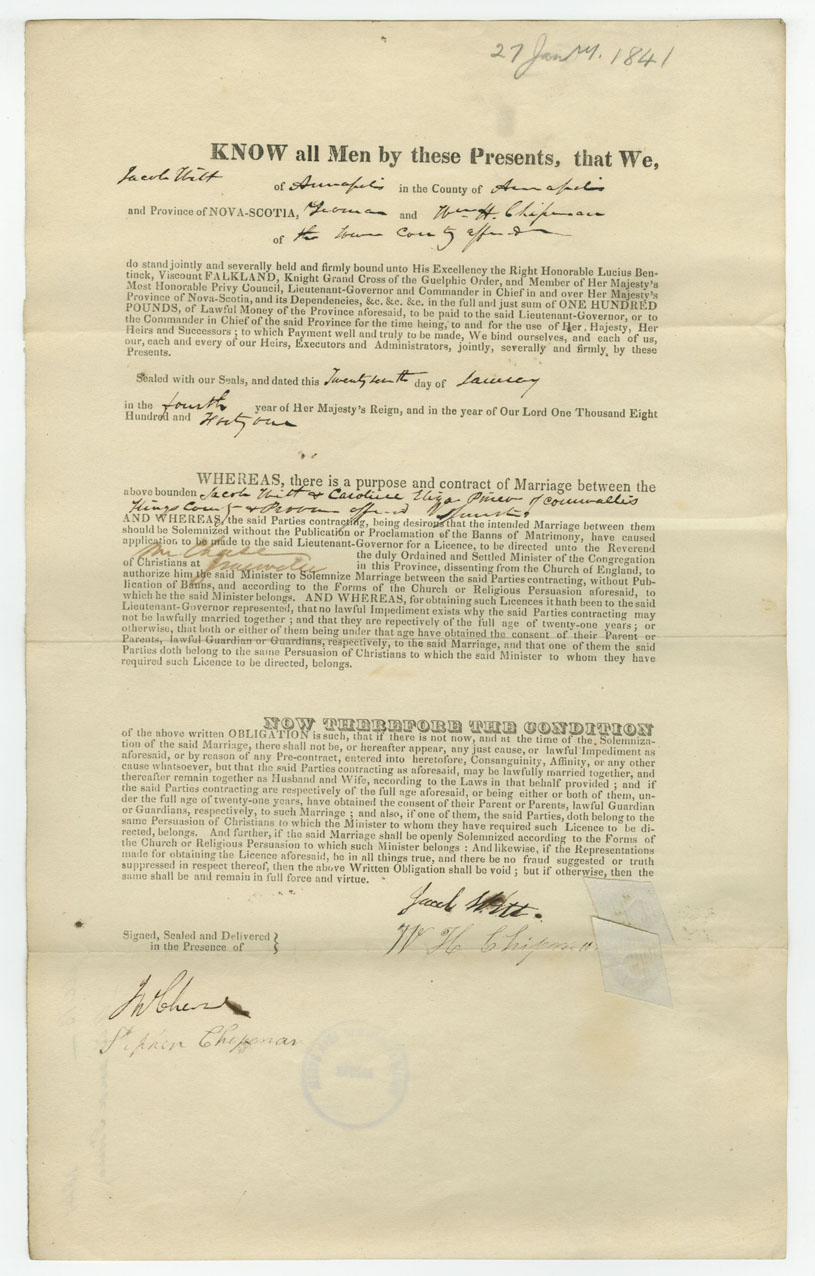 27 Jany. 1841
KNOW all Men by these Presents, that We,
Jacob Witt of Annapolis in the County of Annapolis
and Province of NOVA-SCOTIA, Yeoman and Wm H. Chipman
of the same County afforesd
do stand jointly and severally held and firmly bound unto His Excellency the Right Honorable Lucius Ben-
tinck, Viscount FALKLAND, Knight Grand Cross of the Guelphic Order, and Member of Her Majesty's
Most Honorable Privy Council, Lieutenant-Governor and Commander in Chief in and over Her Majesty's
Province of Nova-Scotia, and its Dependencies, &c. &c. &c. in the full and just sum of ONE HUNDRED
POUNDS, of Lawful Money of the Province aforesaid, to be paid to the said Lieutenant-Governor, or to
the Commander in Chief of the said Province for the time being, to and for the use of Her. Hajesty, Her
Heirs and Successors ; to which Payment well and truly to be made, We bind ourselves, and each of us,
our, each and every of our Heirs, Executors and Administrators, jointly, severally and firmly by these
Presents.
Sealed with our Seals, and dated this day of January
in the fourth year of Her Majesty's Reign, and in the year of Our Lord One Thousand Eight
Hundred and Forty one
WHEREAS, there is a purpose and contract of Marriage between the
above bounden Jacob Witt & Caroline Eliza Pineo of Cornwallis
Kings County & Province afforesd Spinster
AND WHEREAS, the said Parties contracting, being desirous that the intended Marriage between them
should be Solemnized without the Publication or Proclamation of the Banns of Matrimony, have caused
application to be made to the said Lieutenant-Governor for a Licence, to be directed unto the Reverend
Mr Chase the duly Ordained and Settled Minister of the Congregation
of Christians at in this Province, dissenting from the Church of England, to
authorize him the said Minister to Solemnize Marriage between the said Parties contracting, without Pub-
lication of Banns, and according to the Forms of the Church or Religious Persuation aforesaid, to
which he the said Minister belongs. AND WHEREAS, for obtaining such Licences it hath been to the said
Lieutenant-Governor represented, that no lawful Impediment exists why the said Parties contracting may
not be lawfully married together ; and that they are repectively of the full age of twenty-one years ; or
otherwise, that both or either of them being under that age have obtained the consent of their Parent or
Parents, lawful Guardian or Guardians, respectively, to the said Marriage, and that one of them the said
Parties doth belong to the same Persuasion of Christians to which the said Minister to whom they have
required such Licence to be directed, belongs.
NOW THEREFORE THE CONDITION
of the above written OBLIGATION is such, that if there is not now, and at the time of the Solemniza-
tion of the said Marriage, there shall not be, or hereafter appear, any just cause, or lawful Impediment as
aforesaid, or by reason of any Pre-contract, entered into heretofore, Consanguinity, Affinity, or any other
cause whatsoever, but that the said Parties contracting as aforesaid, may be lawfully married together, and
thereafter remain together as Husband and Wife, according to the Laws in that behalf provided ; and if
the said Parties contracting are respectively of the full age aforesaid, or being either or both of them, un-
der the full age of twenty-one years, have obtained the consent of their Parent or Parents, lawful Guardian
or Guardians, respectively, to such Marriage ; and also, if one of them, the said Parties, doth belong to the
same Persusion of Christians to which the Minister to whom they have required such Licence to be di-
rected, belongs. And further, if the said Marriage shall be openly Solemnized according to the Forms of
the Church or Religious Persuation to which such Minister belongs : And likewise, if the Representations
made for obtaining the Licence aforesaid, be in all things true, and there be no fraud suggested or truth
suppressed in respect thereof, then the above Written Obligation shall be void ; but if otherwise, then the
same shall be and remain in full force and virtue.
Jacob Witt.
Signed, Sealed and Delivered
in the Presence of
W H Chipman
Stephen Chipman